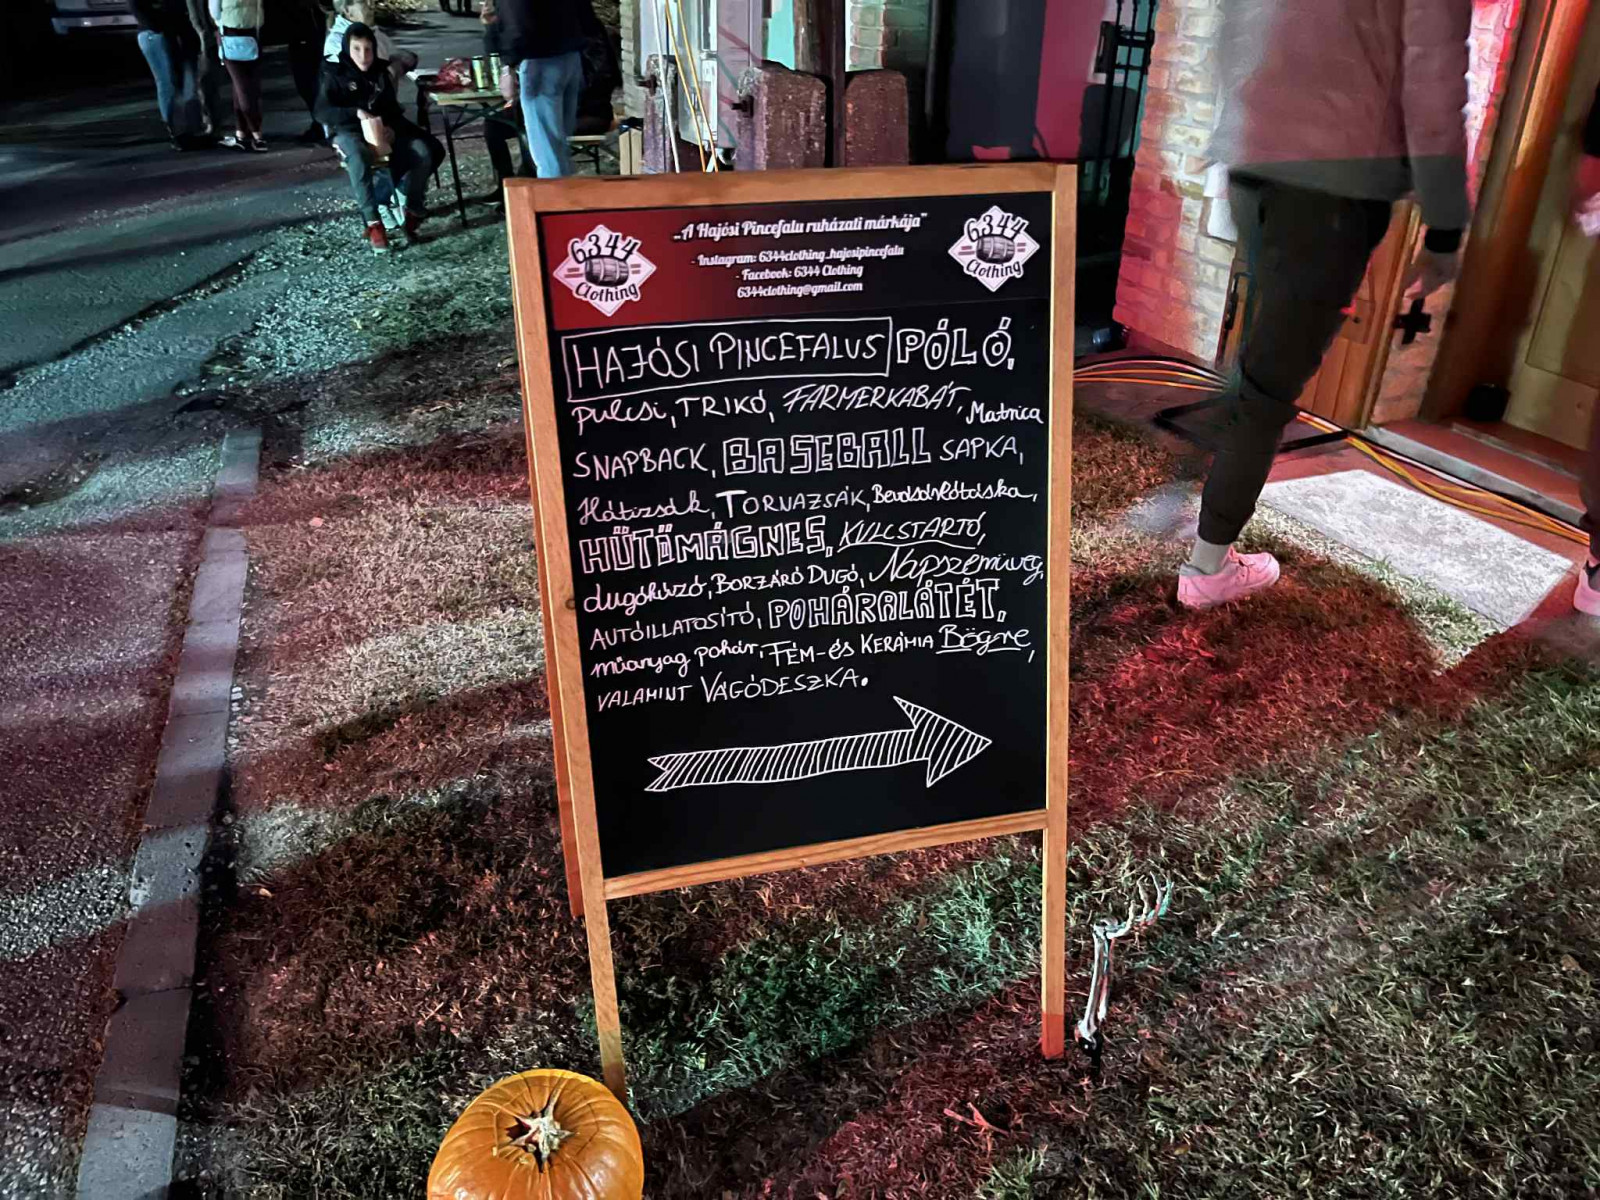 6344
Clothing
„A Hajósi Pincefalu ruházati márkája”
- Instagram: 6344clothing_hajosipincefalu
- Facebook: 6344 Clothing
6344clothing@gmail.com
6344
Clothing
HAJÓSI PINCEFALUS PÓLÓ,
Pulcsi, TRIKÓ, FARMERKABÁT, Matrica
SNAPBACK, BASEBALL SAPKA,
Hátizsák, TORNAZSÁK, Bevásárlótáska,
HŰTŐMÁGNES, KULCSTARTÓ,
dugóhúzó, BORZÁRÓ DUGÓ, Napszemüveg,
AUTÓILLATOSÍTÓ, POHÁRALÁTÉT,
műanyag pohár, FÉM-és KERÁMIA Bögre,
VALAMINT VÁGÓDESZKA.